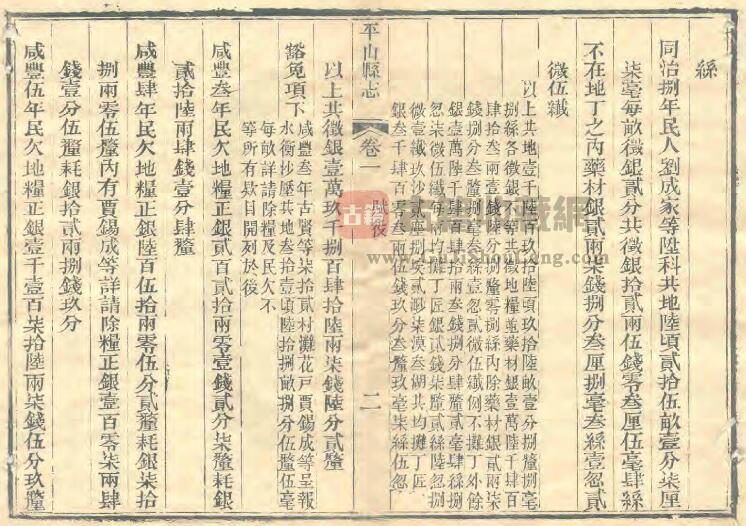 絲
同治捌年民人劉成家等陞科共地陸頃貳拾伍畝壹分柒厘
柒毫每畝徵銀貳分共徵銀拾貳兩伍錢零叁厘伍毫肆絲
不在地丁之內藥材銀貳兩柒錢捌分叁厘捌毫叁絲壹忽貳
微伍纖
以上共地壹千陸百玖拾陸頃玖拾陸畝壹分捌釐捌毫
捌絲各徵銀不等共徵地糧並藥材銀壹萬陸千肆百
肆拾叁兩壹錢陸分捌釐零捌絲內除藥材銀貳兩柒
錢捌分叁釐捌毫叁絲壹忽貳微伍纖例不攤丁外餘
銀壹萬陸千肆百肆拾兩叁錢捌分肆釐貳毫肆絲捌
忽柒微伍纖每兩均攤丁匠銀貳錢柒釐貳絲陸忽捌
微壹纖玖沙貳塵捌埃貳渺柒漠叁湖共均攤丁匠
銀叁千肆百零叁兩伍錢玖分叁釐玖毫柒絲伍忽
平山縣志 卷一 賦役 二
以上共徵銀壹萬玖千捌百肆拾陸兩柒錢陸分貳釐
豁免項下
咸豐叁年古賢等柒拾貳村攤花戶賈錫成等呈報
水衝沙壓共地叁拾壹頃陸拾捌畝捌分伍釐伍毫
每畝詳請除糧及民欠不
等所有欵目開列於後
咸豐叁年民欠地糧正銀貳百貳拾兩零壹錢貳分柒釐耗銀
貳拾陸兩肆錢壹分肆釐
咸豐肆年民欠地糧正銀陸百伍拾兩零伍分貳釐耗銀柒拾
捌兩零伍釐內有賈錫成等詳請除糧正銀壹百零柒兩肆
錢壹分伍釐耗銀拾貳兩捌錢玖分
咸豐伍年民欠地糧正銀壹千壹百柒拾陸兩柒錢伍分玖釐
古籍
www.GuJiShouLong.com